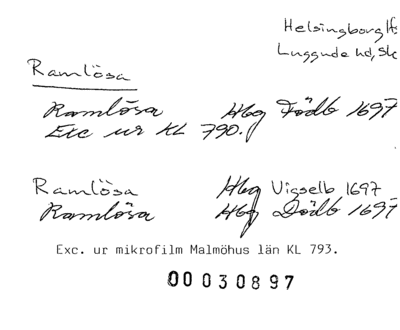 Helsingborg lfs
Luggude hd, Sk
Ramlösa
Ramlösa Hbg Födb 1697
Exc ur KL 790.
Ramlösa Hbg Vigselb 1697
Ramlösa Hbg Dödb 1697
Exc. ur mikrofilm Malmöhus län KL 793.
00030897